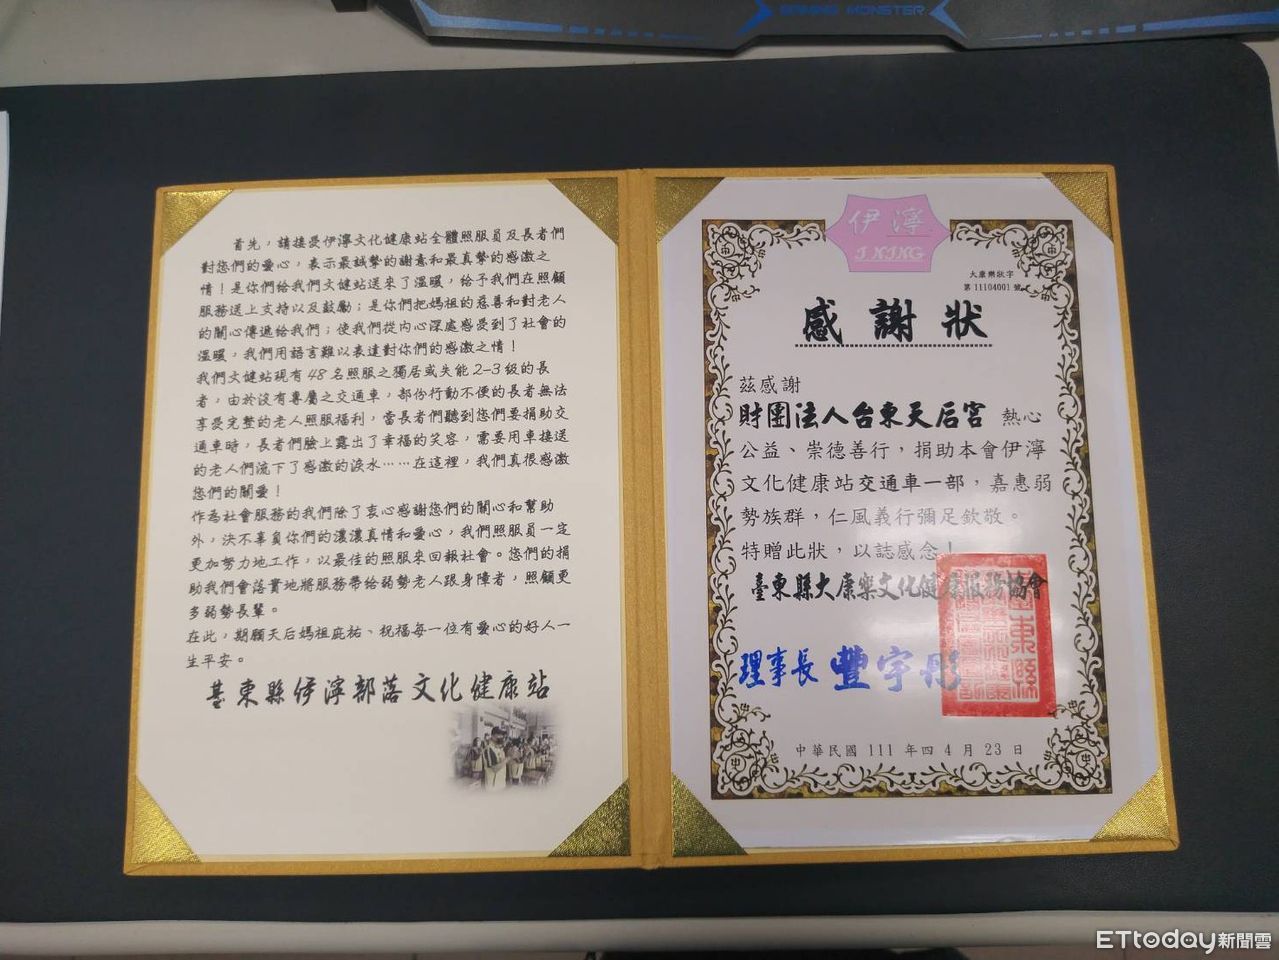 GAMING MONSTER
首先，請接受伊濘文化健康站全體照服員及長者們
對您們的愛心，表示最誠摯的謝意和最真摯的感激之
情！是你們給我們文健站送來了溫暖，給予我們在照顧
服務送上支持以及鼓勵；是你們把媽祖的慈善和對老人
的關心傳遞給我們；使我們從內心深處感受到了社會的
溫暖，我們用語言難以表達對你們的感激之情！
我們文健站現有48名照服之獨居或失能2-3級的長
者，由於沒有專屬之交通車，部份行動不便的長者無法
享受完整的老人照服福利，當長者們聽到您們要捐助交
通車時，長者們臉上露出了幸福的笑容，需要用車接送
的老人們流下了感激的淚水……在這裡，我們真很感激
您們的關愛！
作為社會服務的我們除了衷心感謝您們的關心和幫助
外，決不辜負你們的濃濃真情和愛心，我們照服員一定
更加努力地工作，以最佳的照服來回報社會。您們的捐
助我們會落實地將服務帶給弱勢老人跟身障者，照顧更
多弱勢長輩。
在此，期願天后媽祖庇祐、祝福每一位有愛心的好人一
生平安。
臺東縣伊濘部落文化健康站
伊濘
I NING
大康樂狀字
第11104001號
感謝狀
茲感謝
財團法人台東天后宮 熱心
公益、崇德善行，捐助本會伊濘
文化健康站交通車一部，嘉惠弱
勢族群，仁風義行彌足欽敬。
特贈此狀，以誌感念！
臺東縣大康樂文化健康服務協會
理事長 豐宇彤
中華民國 111 年四 4 月 23 日
ETtoday新聞雲